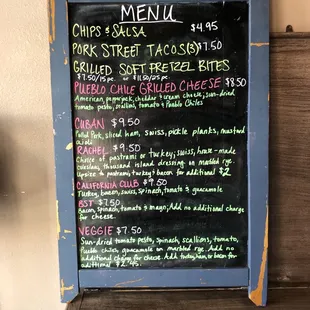 MENU
CHIPS & SALSA $4.95
PORK STREET TACOS(3) $7.50
GRILLED SOFT PRETZEL BITES
$7.50/15 pc. or $11.50/25 pc.
PUEBLO CHILE GRILLED CHEESE $8.50
American, pepperjack, cheddar & cream cheese, sun-dried
tomato pesto, scallions, tomato & Pueblo Chiles
CUBAN $9.50
Pulled Pork, sliced ham, swiss, pickle planks, mustard
aioli
RACHEL $9.50
Choice of pastrami or turkey; swiss, house-made
coleslaw, thousand island dressing on marbled rye.
Upsize to pastrami, turkey & bacon for additional $2
CALIFORNIA CLUB $9.50
Turkey, bacon, swiss, Spinach, tomato & guacamole
BST $7.50
Bacon, Spinach, tomato & mayo; Add no additional charge
for cheese.
VEGGIE $7.50
Sun-dried tomato pesto, spinach, scallions, tomato,
Pueblo chiles, guacamole on marbled rye. Add no
additional charge for cheese. Add turkey, ham, or bacon for
additional $2.95.